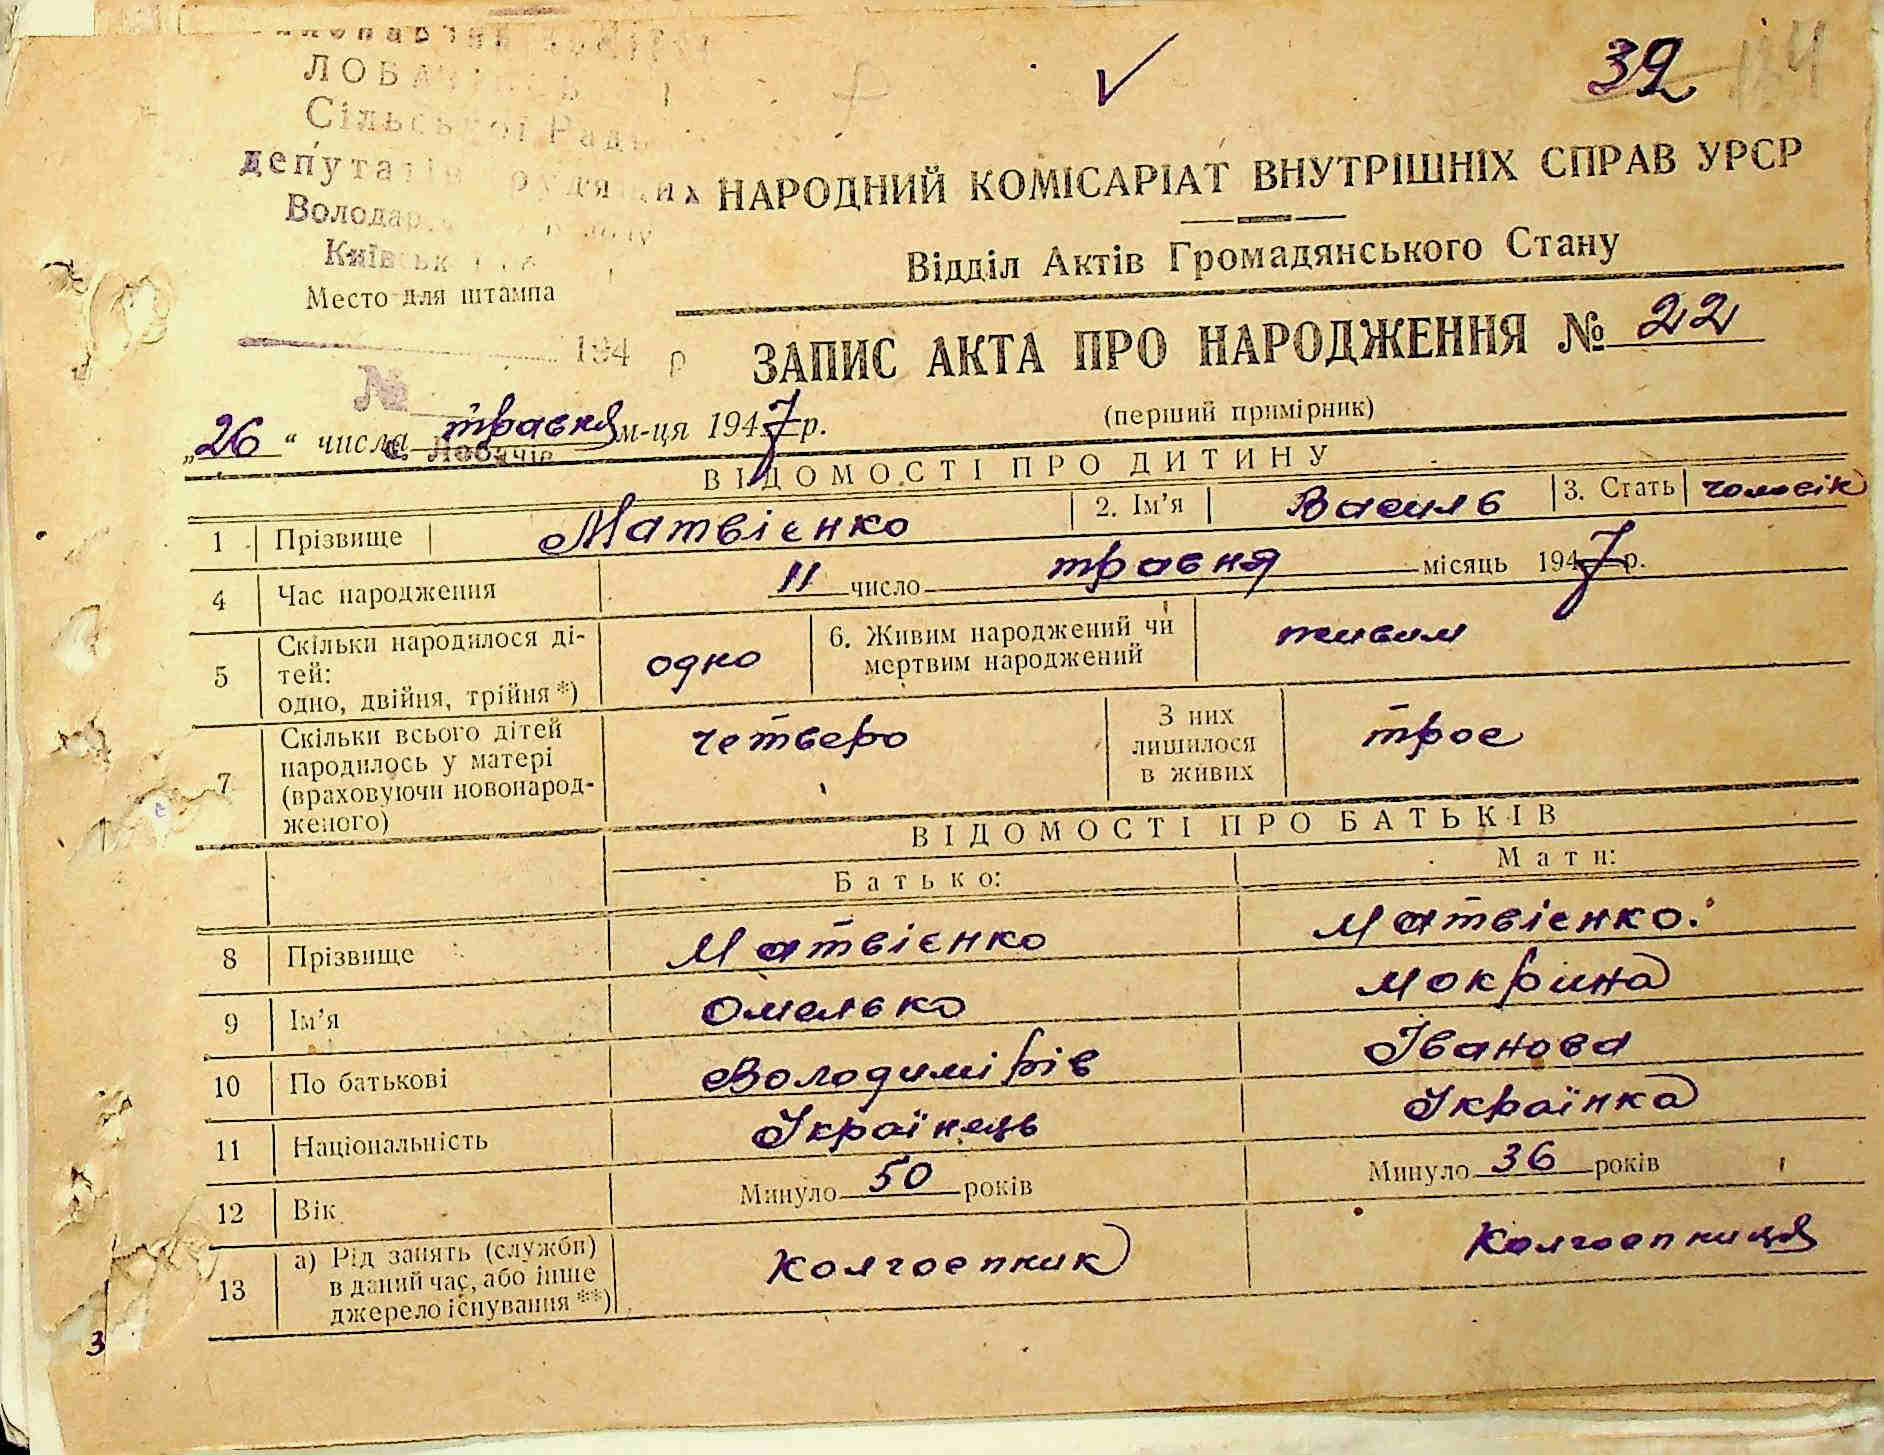 39
ЛОБАЧІВСЬ
Сільської Ради
депутатів трудящих
Місто для штампа
НАРОДНИЙ КОМІСАРІАТ ВНУТРІШНІХ СПРАВ УРСР
Відділ Актів Громадянського Стану
194 р
ЗАПИС АКТА ПРО НАРОДЖЕННЯ № 22
№
„26“ числа травня м-ця 1947 р.
(перший примірник)
с. Лобачів
ВІДОМОСТІ ПРО ДИТИНУ
1 Прізвище Матвієнко 2. Ім'я Василь 3. Стать чоловік
4 Час народження 11 число травня місяць 1947 р.
5 Скільки народилося ді-
тей:
одно, двійня, трійня *) одно 6. Живим народжений чи
мертвим народжений живим
7 Скільки всього дітей
народилось у матері
(враховуючи новонарод-
женого) четверо З них
лишилося
в живих троє
ВІДОМОСТІ ПРО БАТЬКІВ
Батько: Мати:
8 Прізвище Матвієнко Матвієнко.
9 Ім'я Омелько Мокрина
10 По батькові Володимірів Іванова
11 Національність Українець Українка
12 Вік Минуло 50 років Минуло 36 років
13 а) Рід занять (служби)
в даний час, або інше
джерело існування **) Колгоспник Колгоспниця
3